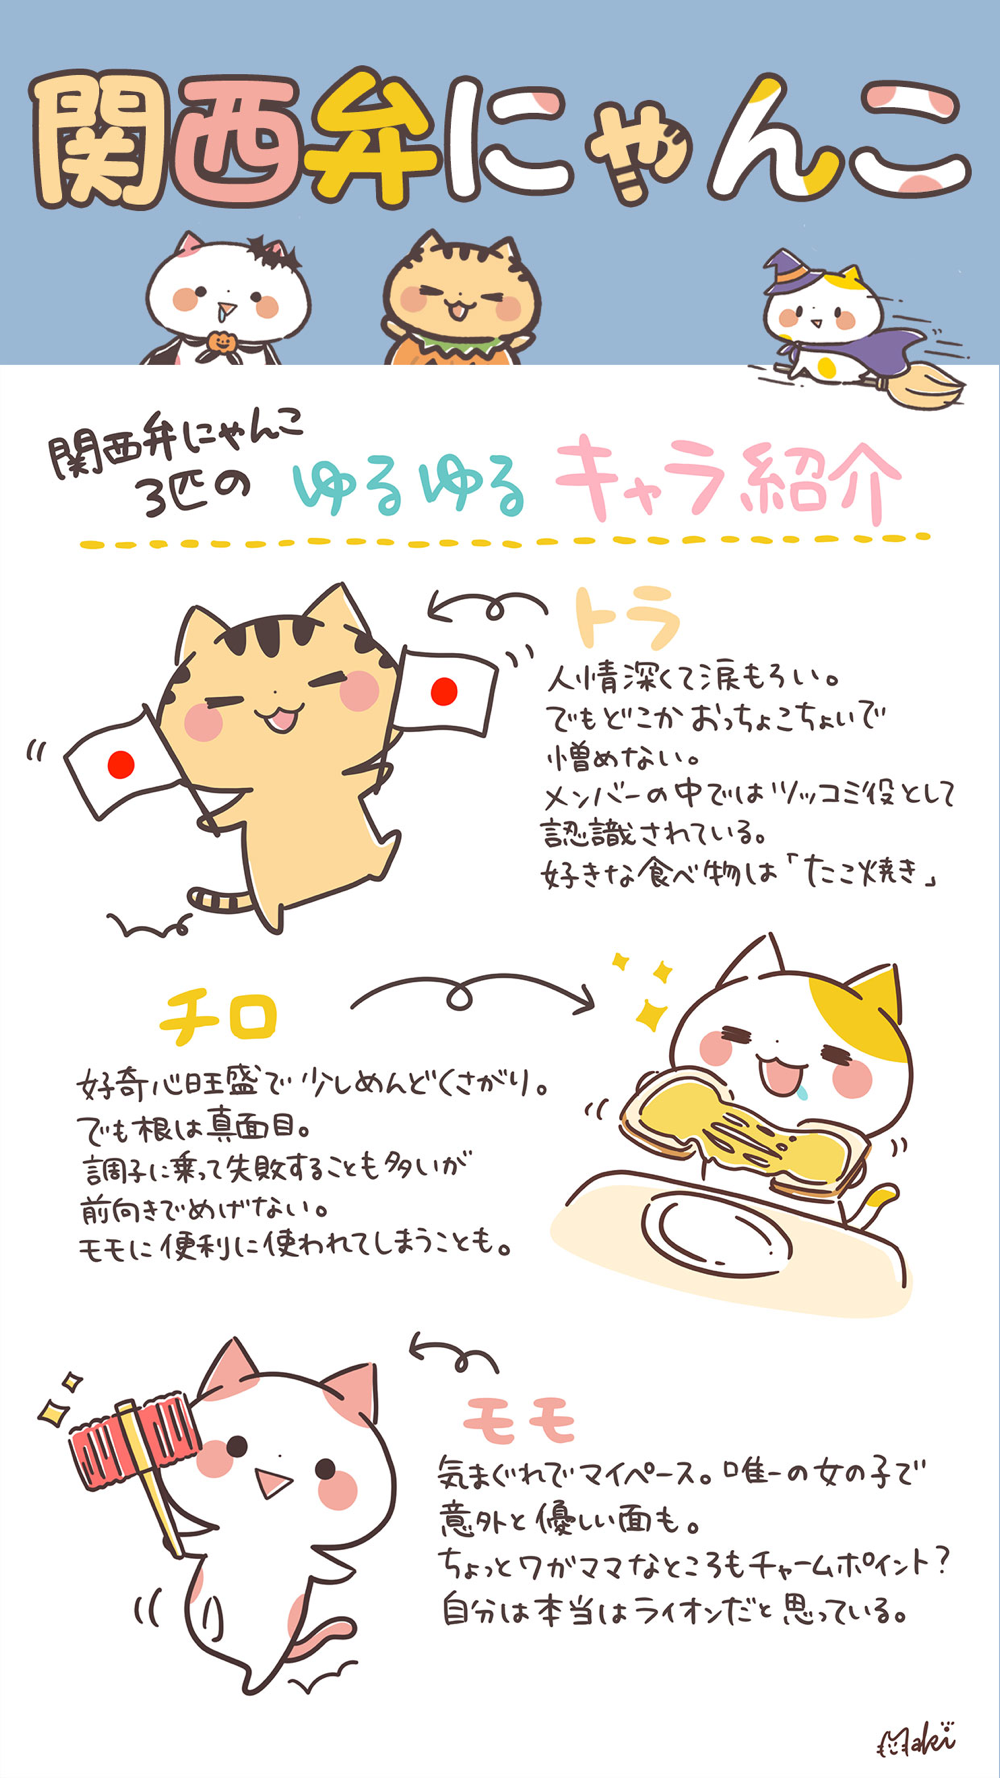 関西弁にゃんこ
関西弁にゃんこ
3匹の ゆるゆる キャラ紹介
トラ
人情深くて涙もろい。
でもどこかおっちょこちょいで
憎めない。
メンバーの中ではツッコミ役として
認識されている。
好きな食べ物は「たこ焼き」
チロ
好奇心旺盛で少しめんどくさがり。
でも根は真面目。
調子に乗って失敗することも多いが
前向きでめげない。
モモに便利に使われてしまうことも。
モモ
気まぐれでマイペース。唯一の女の子で
意外と優しい面も。
ちょっとワガママなところもチャームポイント?
自分は本当はライオンだと思っている。
Maki